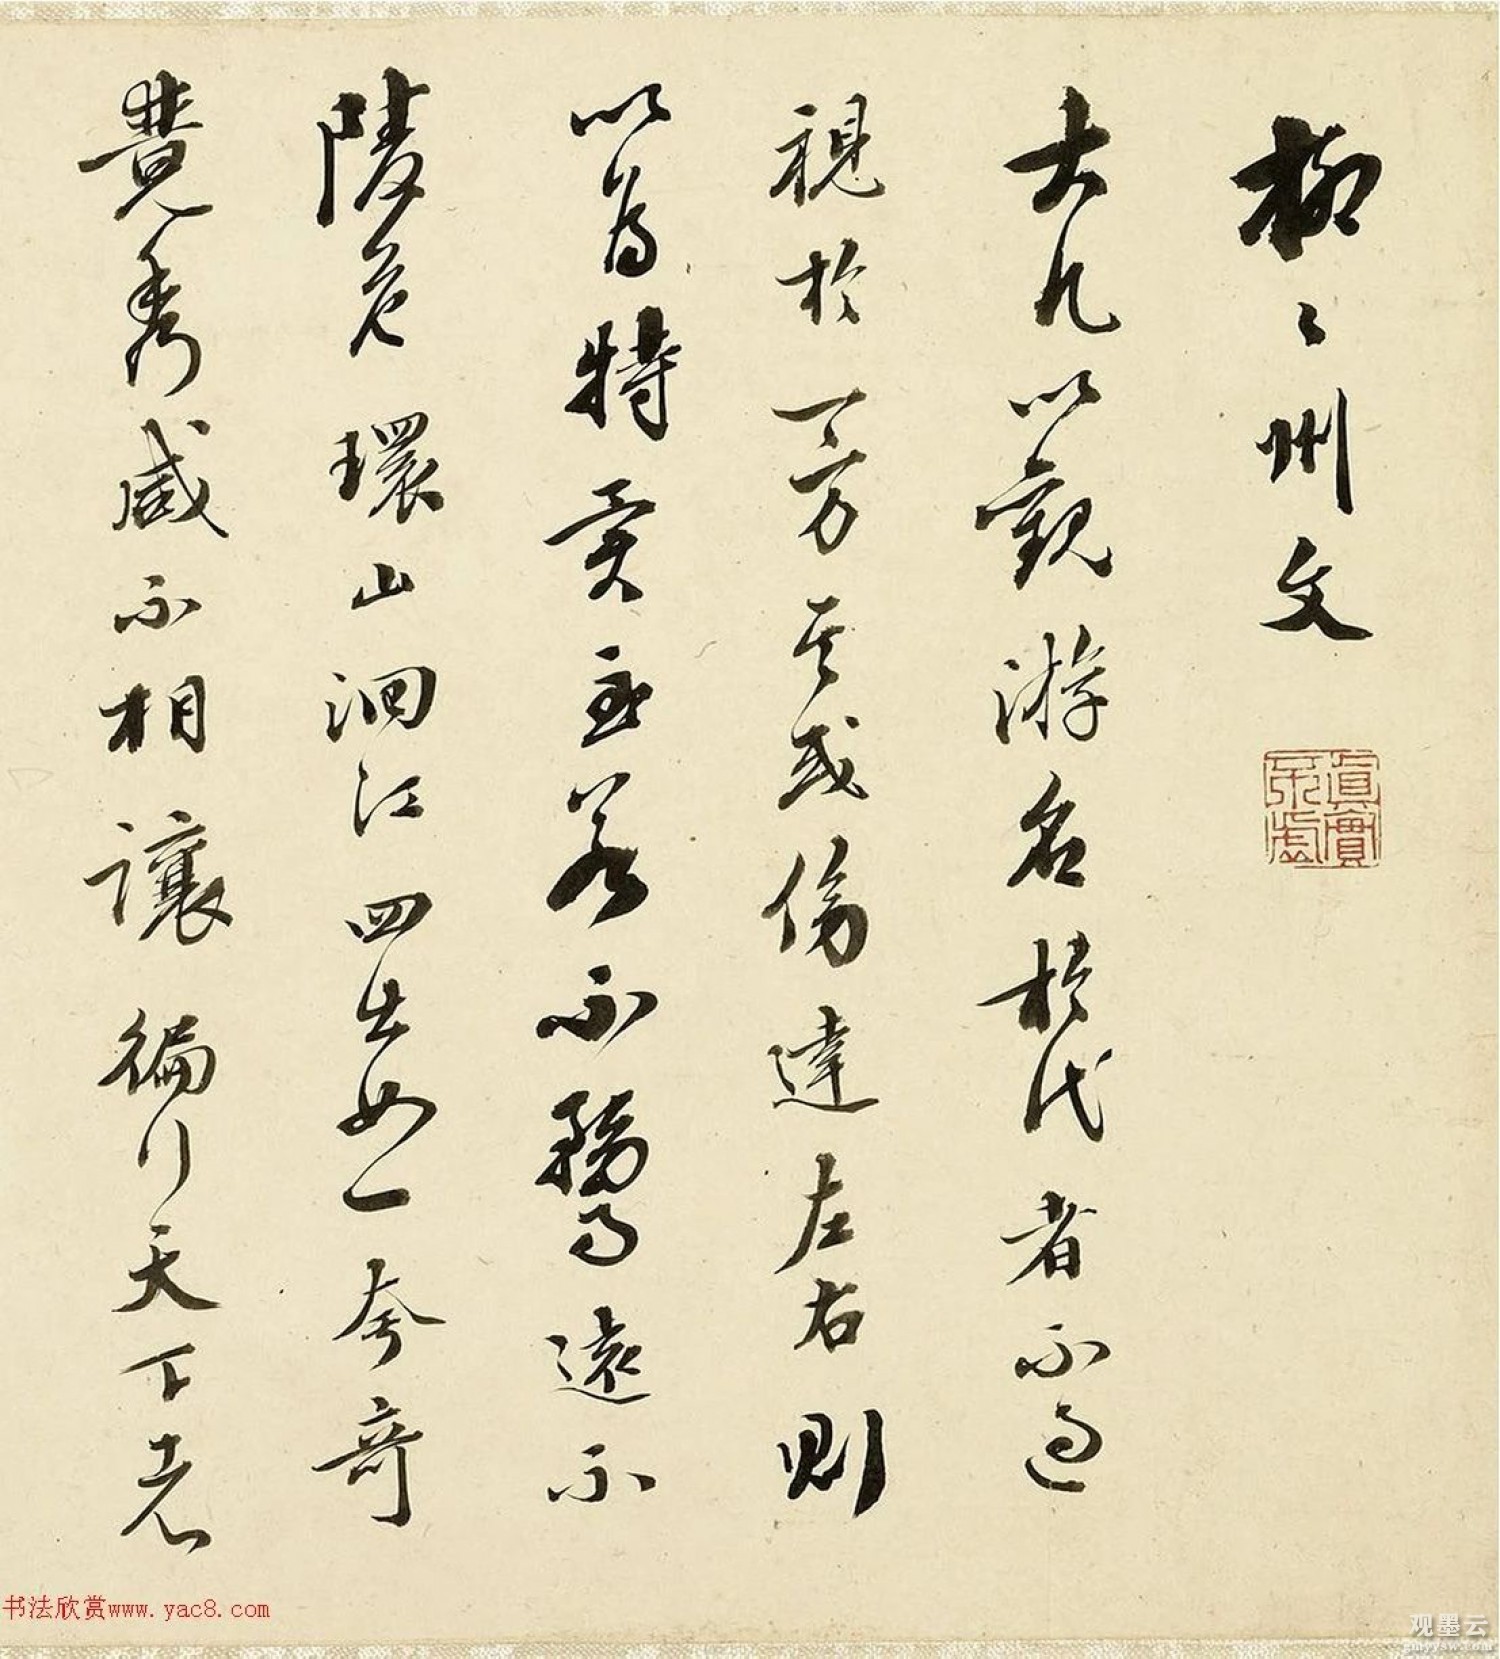 柳々州文
眞實不虛
大凡以觀游名於代者不過
視於一方其或傍達左右則
以為特異至若不騖遠不
陵危環山洄江四出如一夸奇
競秀咸不相讓徧行天下者
书法欣赏www.yac8.com
观墨云
gmyysw.com